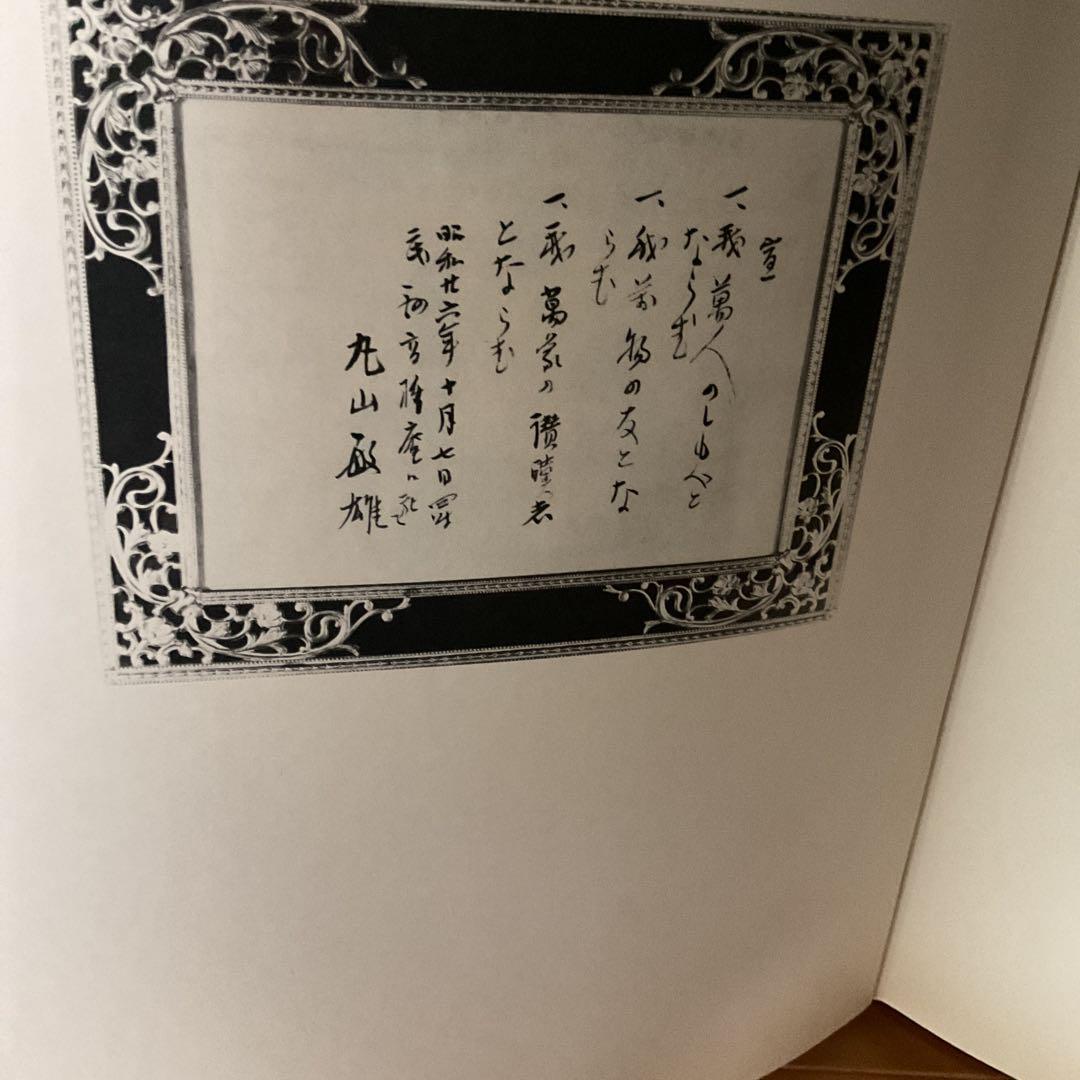 宣
一、我萬人のしもべと
ならむ
一、我萬物の友とな
らむ
一、我萬象の讃嘆者
とならむ
昭和廿六年十月七日
丸山敏雄